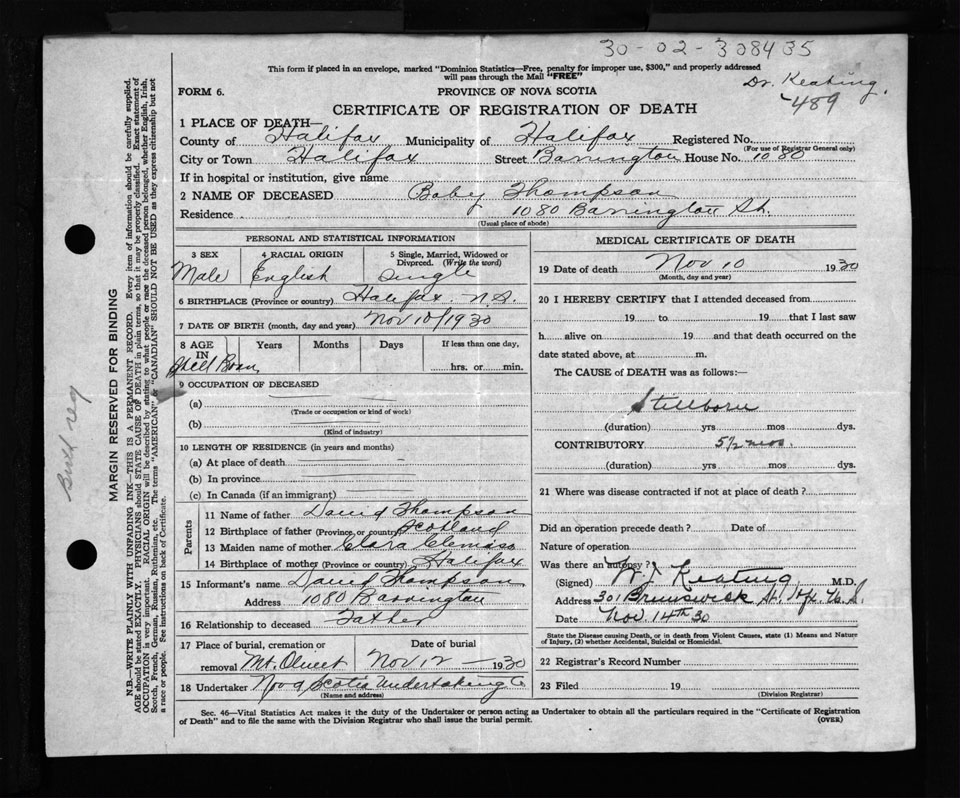 30-02-308435
This form if placed in an envelope, marked "Dominion Statistics—Free, penalty for improper use, $300," and properly addressed
will pass through the Mail "FREE"
Dr. Keating.
489
FORM 6.
PROVINCE OF NOVA SCOTIA
CERTIFICATE OF REGISTRATION OF DEATH
1 PLACE OF DEATH—
County of Halifax Municipality of Halifax Registered No.
(For use of Registrar General only)
City or Town Halifax Street Barrington House No. 1080
If in hospital or institution, give name
2 NAME OF DECEASED Baby Thompson
Residence 1080 Barrington St.
(Usual place of abode)
PERSONAL AND STATISTICAL INFORMATION
3 SEX 4 RACIAL ORIGIN 5 Single, Married, Widowed or
Divorced. (Write the word)
Male English Single
6 BIRTHPLACE (Province or country) Halifax. N.S.
7 DATE OF BIRTH (month, day and year) Nov 10/1930
8 AGE IN Years Months Days If less than one day,
hrs. or min.
Still Born
9 OCCUPATION OF DECEASED
(a)
(Trade or occupation or kind of work)
(b)
(Kind of industry)
10 LENGTH OF RESIDENCE (in years and months)
(a) At place of death
(b) In province
(c) In Canada (if an immigrant)
Parents
11 Name of father David Thompson
12 Birthplace of father (Province or country) Scotland
13 Maiden name of mother Clara
14 Birthplace of mother (Province or country) Halifax
15 Informant's name David Thompson
Address 1080 Barrington
16 Relationship to deceased Father
17 Place of burial, cremation or Date of burial
removal Mt. Olivet Nov 12 — 1930
18 Undertaker Nova Scotia Undertaking Co
(Name and address)
MEDICAL CERTIFICATE OF DEATH
19 Date of death Nov 10 1930
(Month, day and year)
20 I HEREBY CERTIFY that I attended deceased from
19 to 19 that I last saw
h alive on 19 and that death occurred on the
date stated above, at m.
The CAUSE of DEATH was as follows:—
Stillborn
(duration) yrs mos dys.
CONTRIBUTORY 5½ mos.
(duration) yrs mos dys.
21 Where was disease contracted if not at place of death?
Did an operation precede death? Date of
Nature of operation
Was there an autopsy?
(Signed) W J Keating M.D.
Address 301 Brunswick St. Hfx. N.S.
Date Nov. 14th 30
State the Disease causing Death, or in death from Violent Causes, state (1) Means and Nature
of Injury, (2) whether Accidental, Suicidal or Homicidal.
22 Registrar's Record Number
23 Filed 19
(Division Registrar)
Sec. 46—Vital Statistics Act makes it the duty of the Undertaker or person acting as Undertaker to obtain all the particulars required in the "Certificate of Registration
of Death" and to file the same with the Division Registrar who shall issue the burial permit.
(OVER)
MARGIN RESERVED FOR BINDING
N.B.—WRITE PLAINLY WITH UNFADING INK—THIS IS A PERMANENT RECORD. Every item of information should be carefully supplied.
AGE should be stated EXACTLY. PHYSICIANS should STATE CAUSE OF DEATH in plain terms, so that it may be properly classified. Exact statement of
OCCUPATION is very important. RACIAL ORIGIN will be described by stating to what people or race the deceased person belonged, whether English, Irish,
Scotch, French, German, Russian, Ruthenian, etc. The terms "AMERICAN" & "CANADIAN" SHOULD NOT BE USED as they express citizenship but not
a race or people. See instructions on back of Certificate.